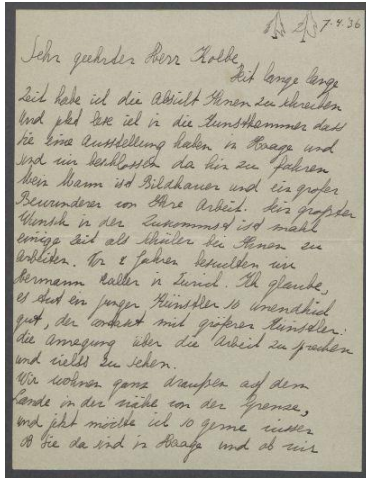 7.4.36
Sehr geehrter Herr Kolbe,
Seit lange lange
Zeit habe ich die Absicht Ihnen zu schreiben
und jetzt lese ich in die Kunstkammer dass
Sie eine Ausstellung haben in Haage und
sind wir beschlossen da hin zu fahren
Mein Mann ist Bildhauer und ein großer
Bewunderer von Ihre Arbeit. Sein großter
Wunsch in der Zukommst ist mahl
einige Zeit als Schüler bei Ihnen zu
arbeiten. Vor 2 Jahren besuchten wir
Hermann Haller in Zurich. Ich glaube,
es tut ein junger Künstler so unendlich
gut, der Contakt mit größeren Künstler.
die Anregung über die Arbeit zu sprechen
und vieles zu sehen.
Wir wohnen ganz draußen auf dem
Lande in der nähe von der Grenze,
und jetzt möchte ich so gerne wissen
ob Sie da sind in Haage und ob wir